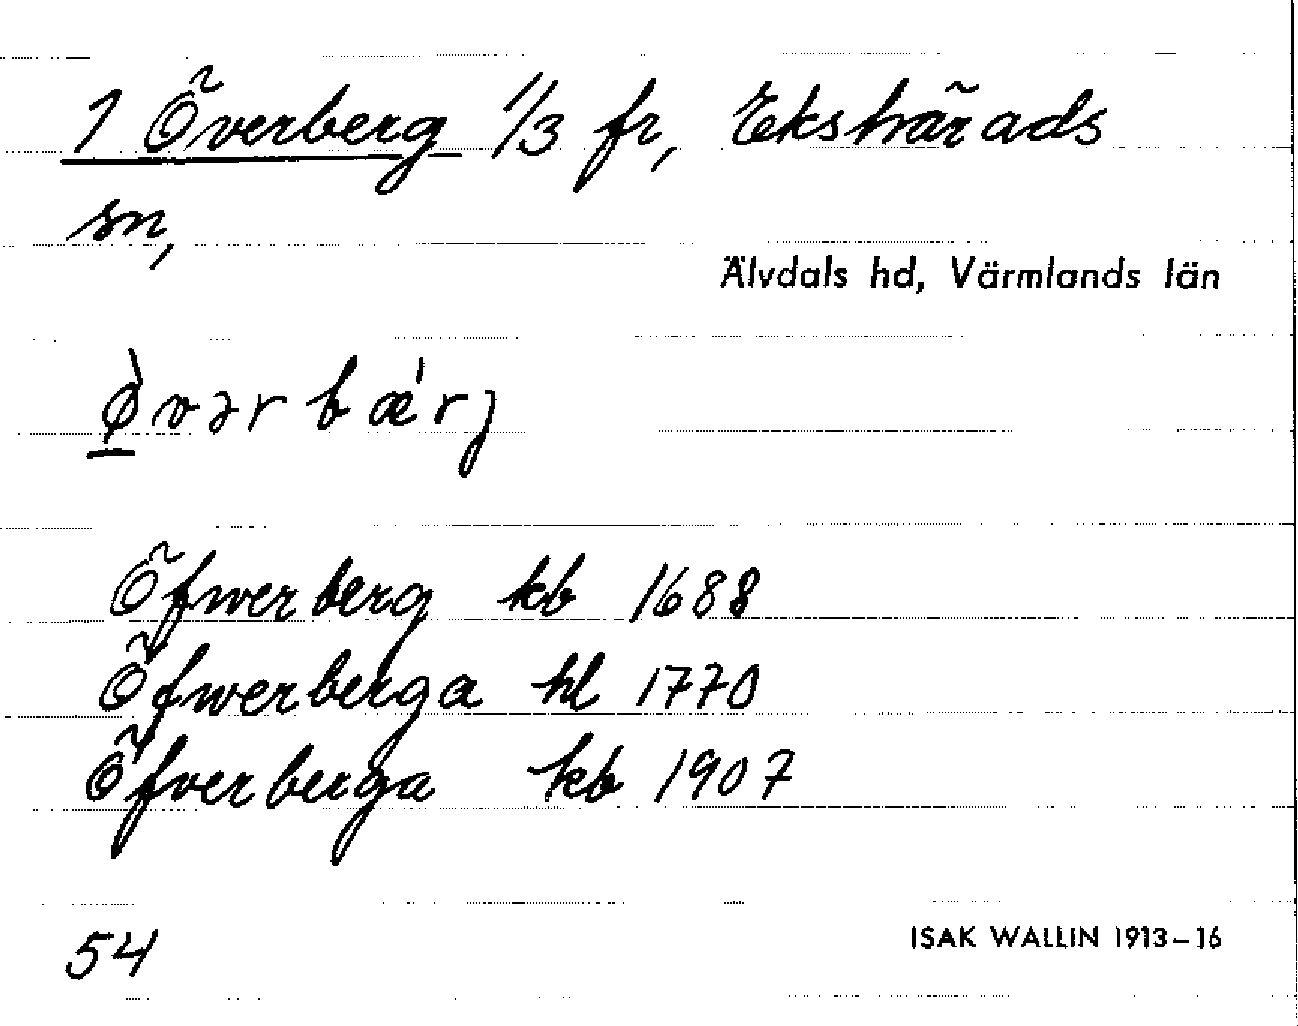 1 Överberg 1/3 fr, Ekshärads
sn,
Älvdals hd, Värmlands län
ø̀vərbǽrj
Öfwerberg kb 1688
Öfwerberga hl 1770
Öfverberga kb 1907
54
ISAK WALLIN 1913–16